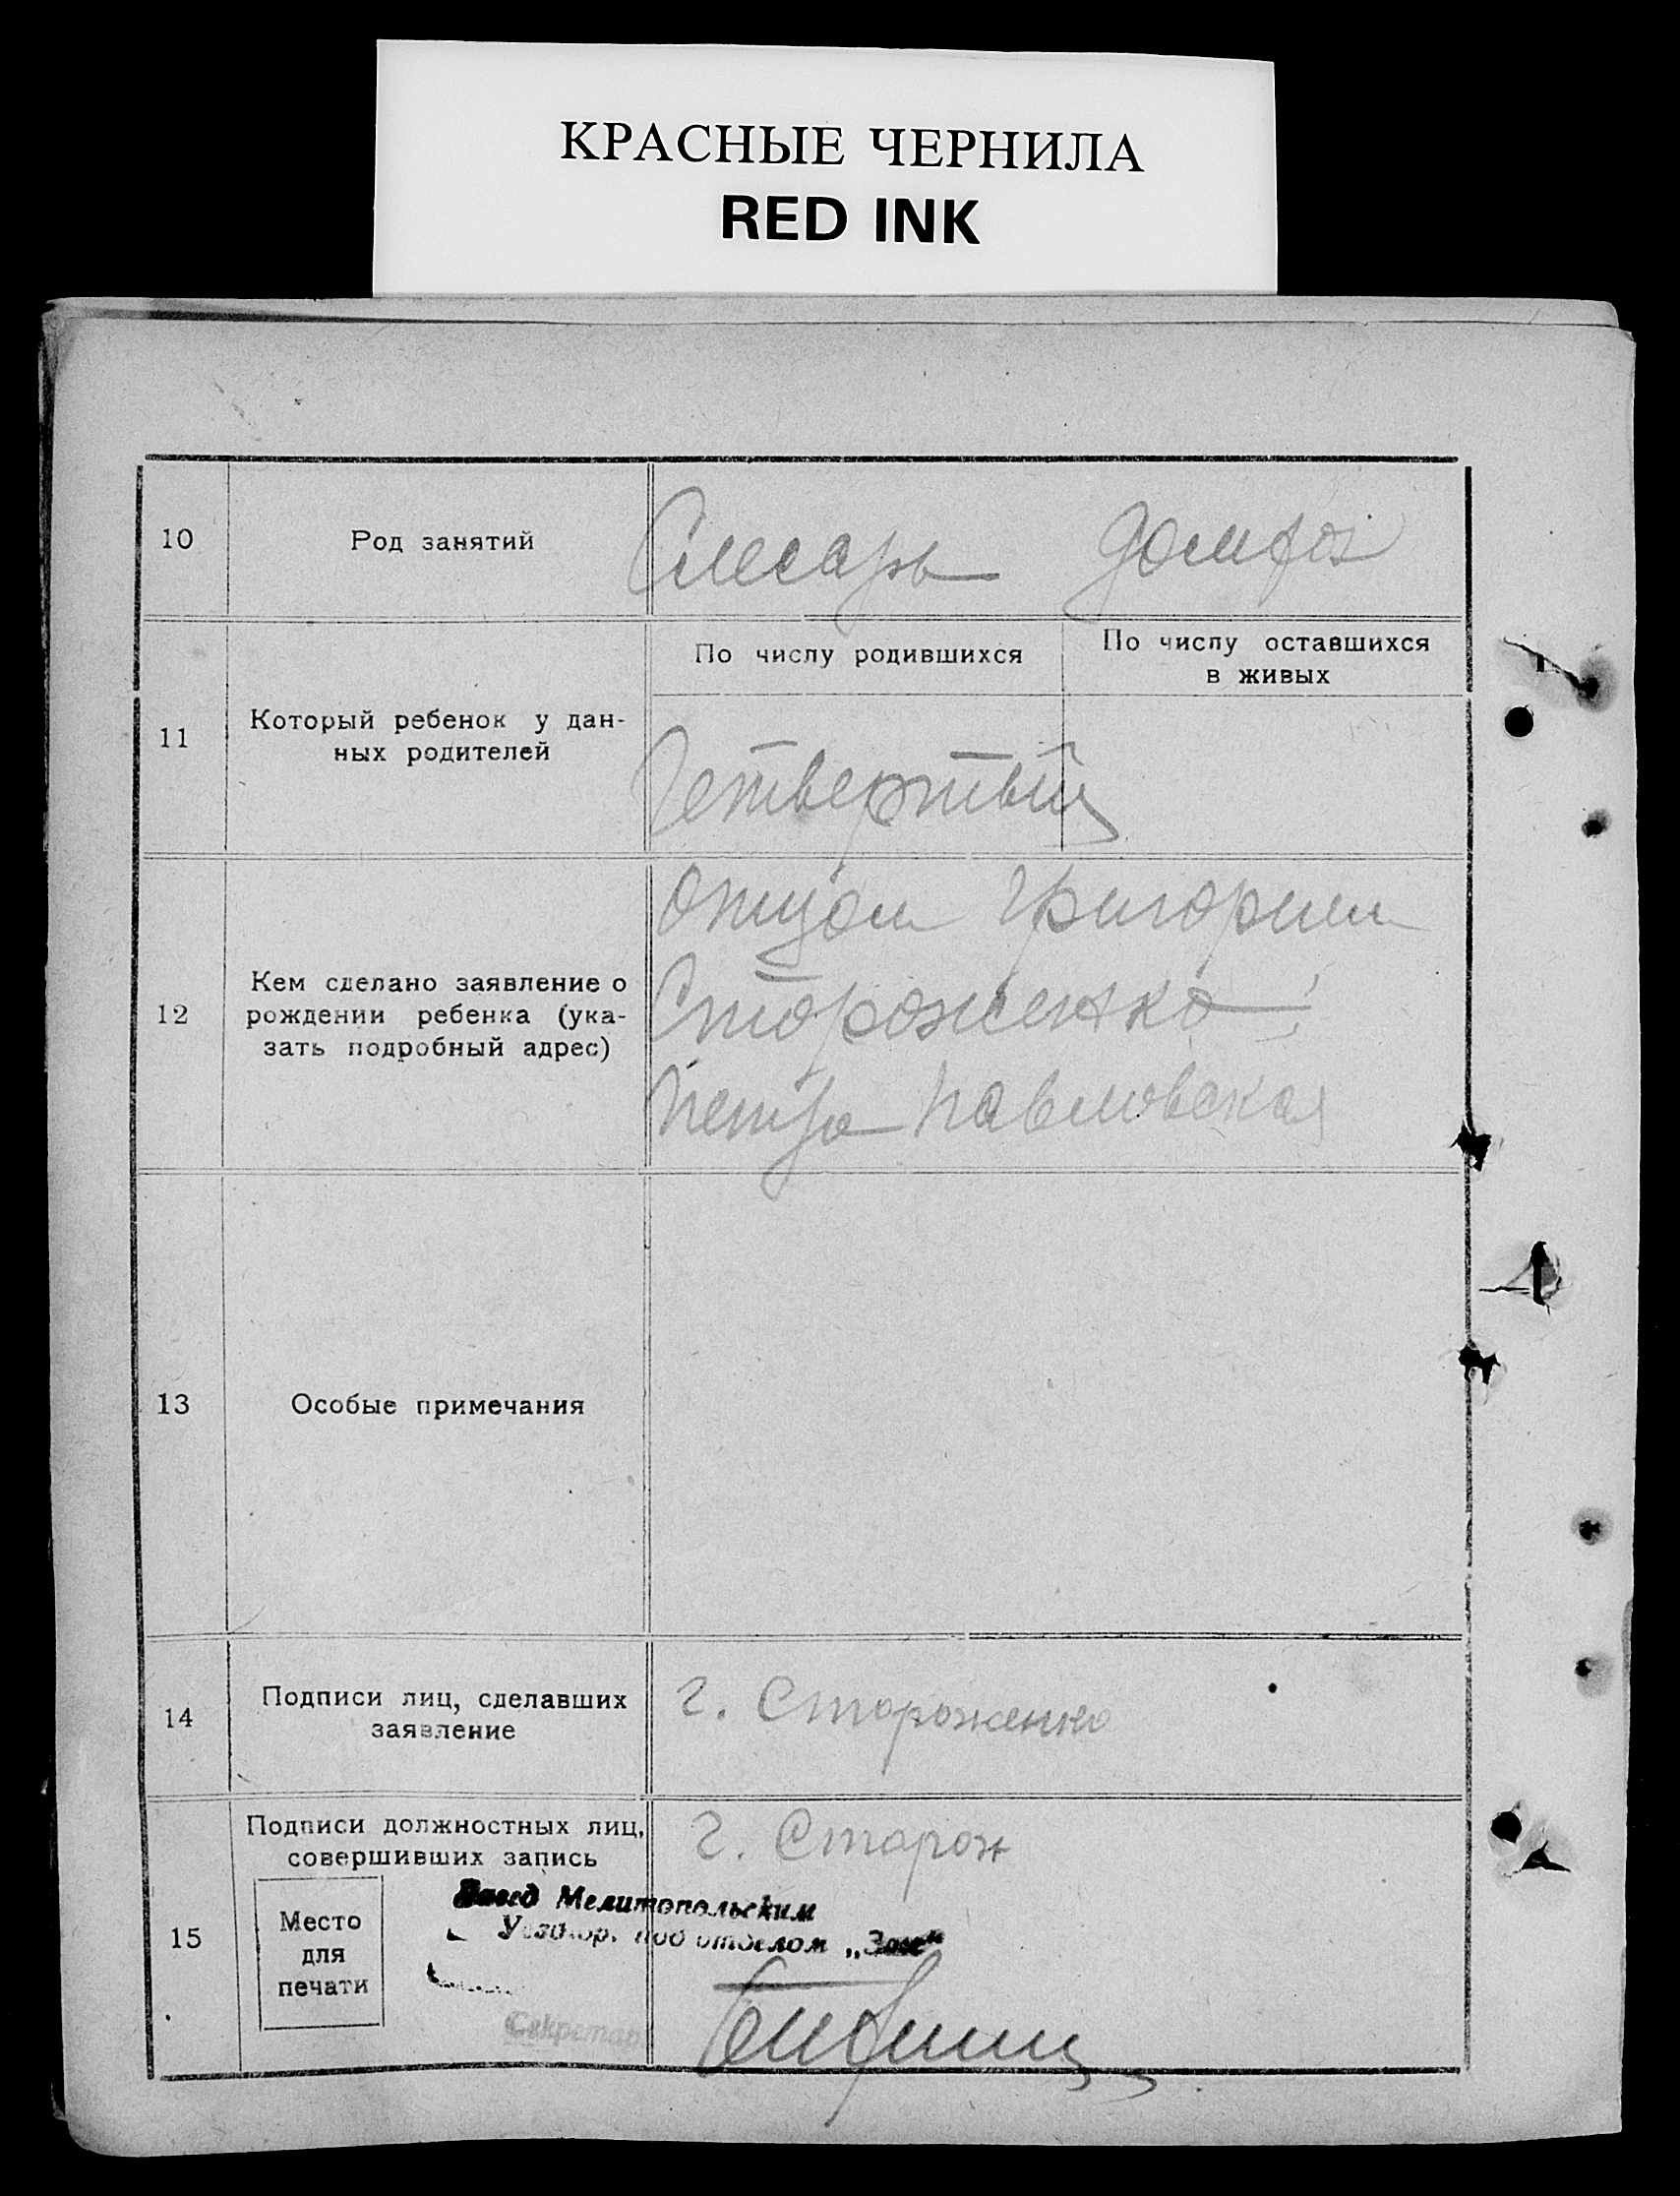 КРАСНЫЕ ЧЕРНИЛА
RED INK
10
Род занятий
Слесарь
11
Который ребенок у дан-
ных родителей
По числу родившихся
По числу оставшихся
в живых
Четвертый
12
Кем сделано заявление о
рождении ребенка (ука-
зать подробный адрес)
Отцом Григорием
Стороженко
Петро Павловская
13
Особые примечания
14
Подписи лиц, сделавших
заявление
Г. Стороженко
15
Подписи должностных лиц,
совершивших запись
Г. Сторож
Место
для
печати
Завед Мелитопольским
под отделом „Загс“
Секретарь